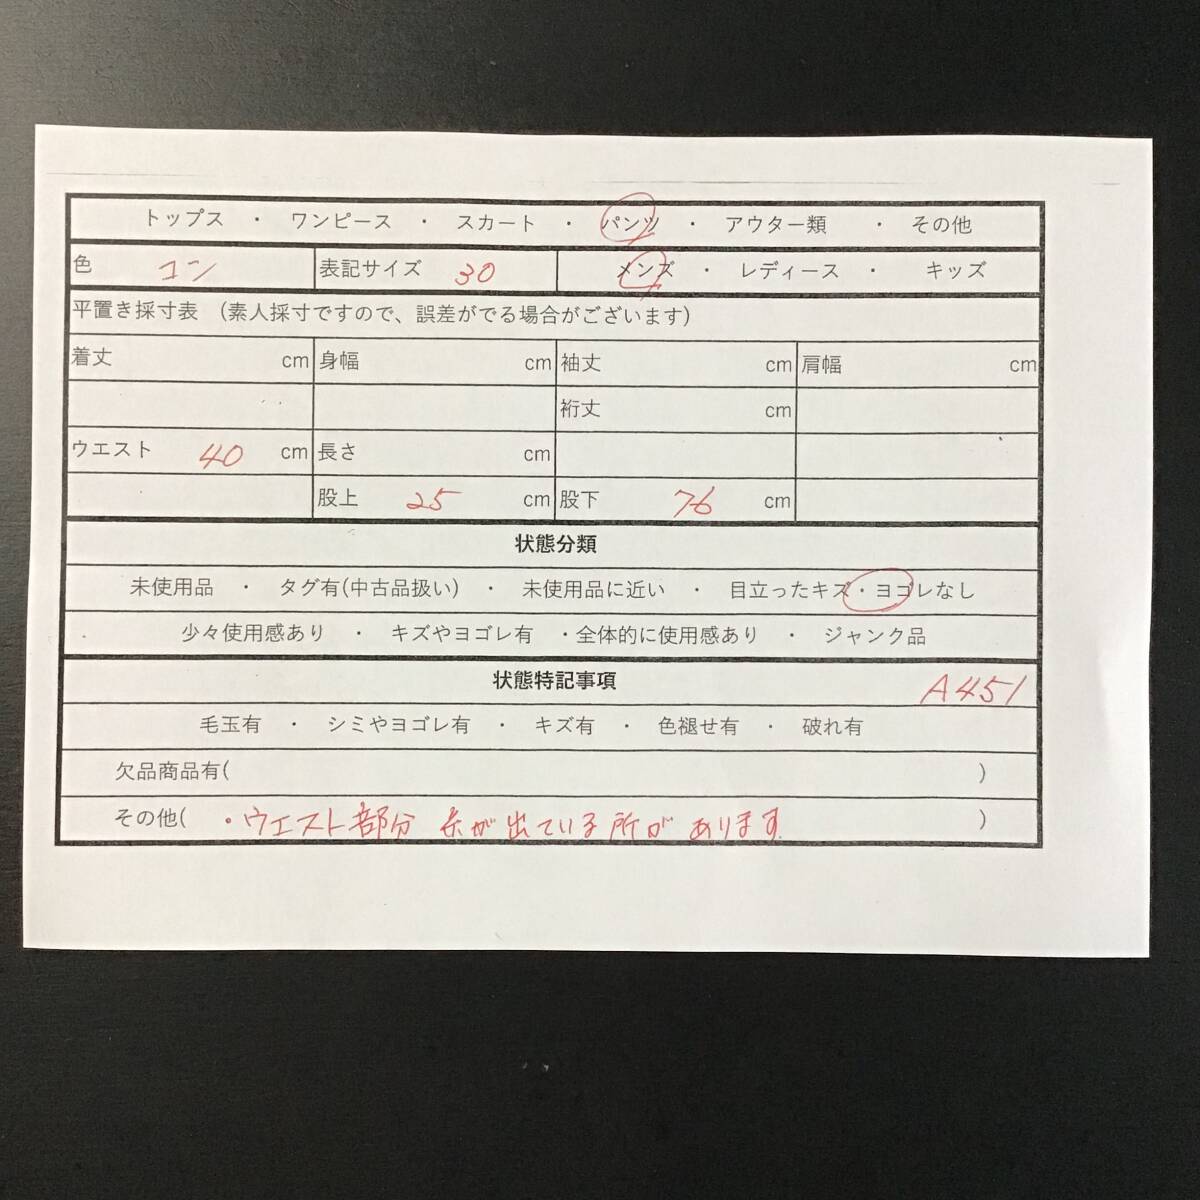 トップス ・ ワンピース ・ スカート ・ パンツ ・ アウター類 ・ その他
色 コン 表記サイズ 30 メンズ ・ レディース ・ キッズ
平置き採寸表 (素人採寸ですので、誤差がでる場合がございます)
着丈 cm 身幅 cm 袖丈 cm 肩幅 cm
裄丈 cm
ウエスト 40 cm 長さ cm
股上 25 cm 股下 76 cm
状態分類
未使用品 ・ タグ有(中古品扱い) ・ 未使用品に近い ・ 目立ったキズ・ヨゴレなし
少々使用感あり ・ キズやヨゴレ有 ・全体的に使用感あり ・ ジャンク品
状態特記事項 A451
毛玉有 ・ シミやヨゴレ有 ・ キズ有 ・ 色褪せ有 ・ 破れ有
欠品商品有( )
その他( ・ウエスト部分 糸が出ている所があります. )